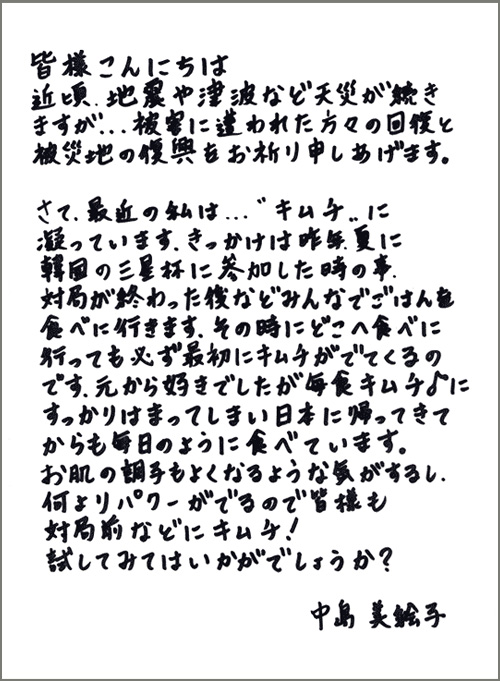 皆様こんにちは
近頃、地震や津波など天災が続き
ますが...被害に遭われた方々の回復と
被災地の復興をお祈り申しあげます。
さて、最近の私は...“キムチ”に
凝っています。きっかけは昨年夏に
韓国の三星杯に参加した時の事、
対局が終わった後などみんなでごはんを
食べに行きます。その時にどこへ食べに
行っても必ず最初にキムチがでてくるの
です。元から好きでしたが毎食キムチ♪に
すっかりはまってしまい日本に帰ってきて
からも毎日のように食べています。
お肌の調子もよくなるような気がするし、
何よりパワーがでるので皆様も
対局前などにキムチ!
試してみてはいかがでしょうか?
中島美絵子